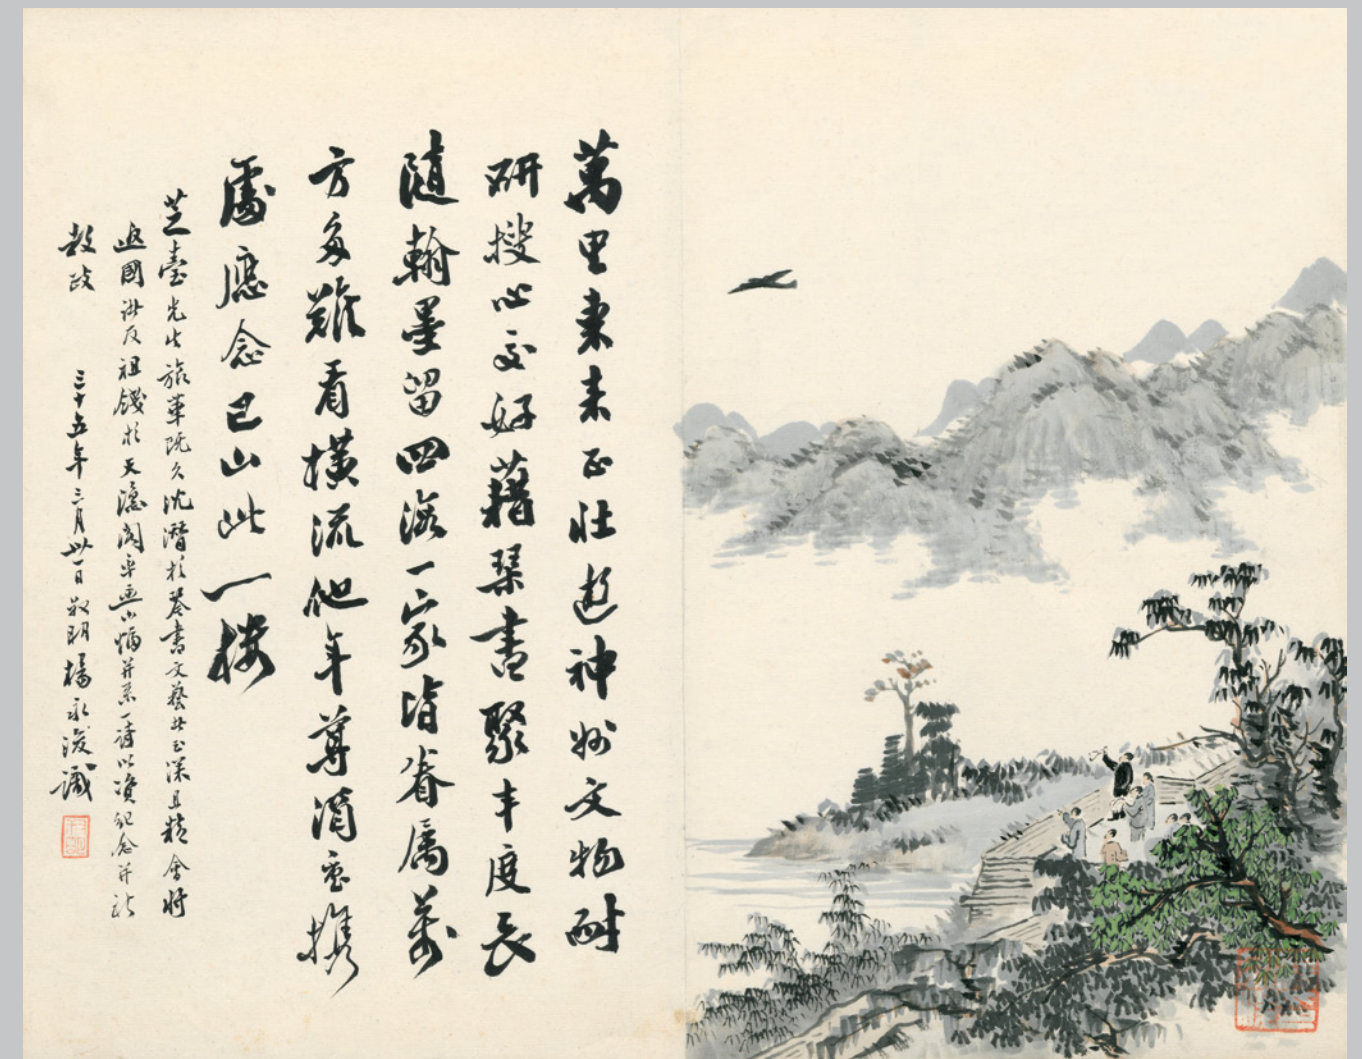 萬里東來正壯遊神州文物耐
研搜心交好藉琴書聚丰度長
隨翰墨留四海一家皆眷屬萬
方多難看橫流他年尊酒重携
處應念巴山此一樓
芝臺先生旅華既久沈潛於琴書文藝者至深且精今將
返國 及祖餞於天 閣 畫小幅并系一詩以資紀念并祈
教政
三十五年三月卅一日 明楊永浚識